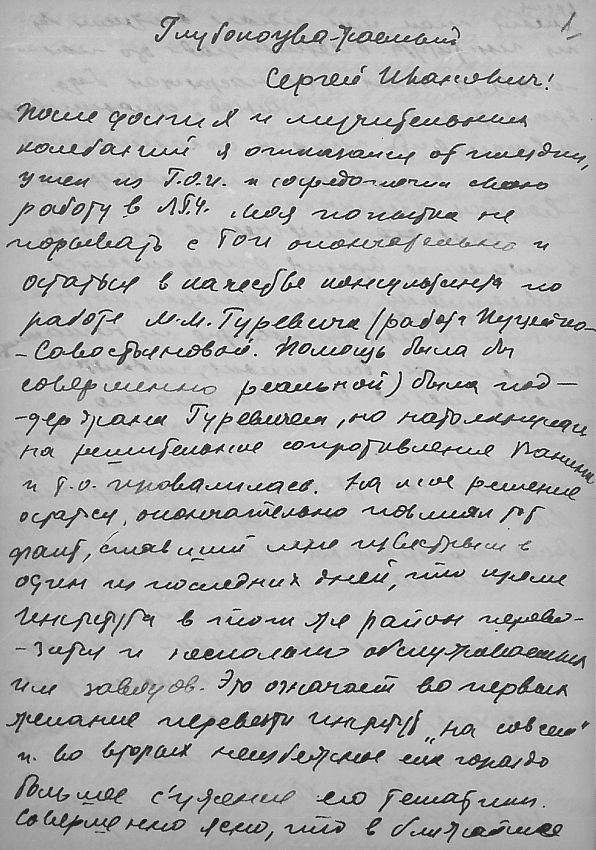 1
Глубокоуважаемый
Сергей Иванович!
После долгих и мучительных
колебаний я отказался от поездки,
ушел из Г.О.И. и сосредоточил свою
работу в ЛГУ. Моя попытка не
порывать с ГОИ окончательно и
остаться в качестве консультанта по
работе М.М. Гуревича (работа
-Савостьяновой. Помощь была бы
совершенно реальной) была под-
-держана Гуревичем, но натолкнулась
на решительное сопротивление
и т.о. провалилась. На мое решение
остаться, окончательно повлиял тот
факт, ставший мне известным в
один из последних дней, что кроме
Института в тот же район перево-
-зится и несколько обслуживаемых
им заводов. Это означает во первых
желание перевезти институт „на совсем"
и во вторых неизбежное еще гораздо
большее сужение его тематики.
Совершенно ясно, что в ближайшее